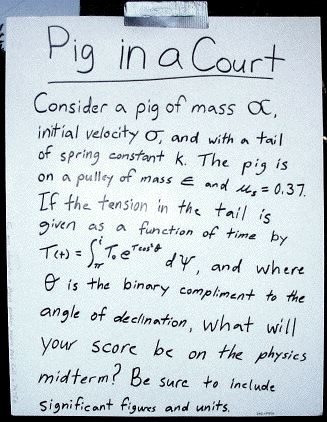 Pig in a Court
Consider a pig of mass ∝,
initial velocity σ, and with a tail
of spring constant k. The pig is
on a pulley of mass ∈ and μₛ = 0.37.
If the tension in the tail is
given as a function of time by
T(t) = ∫ᵢπ T₀ e^(τcos²θ) dψ, and where
θ is the binary compliment to the
angle of declination, what will
your score be on the physics
midterm? Be sure to include
significant figures and units.